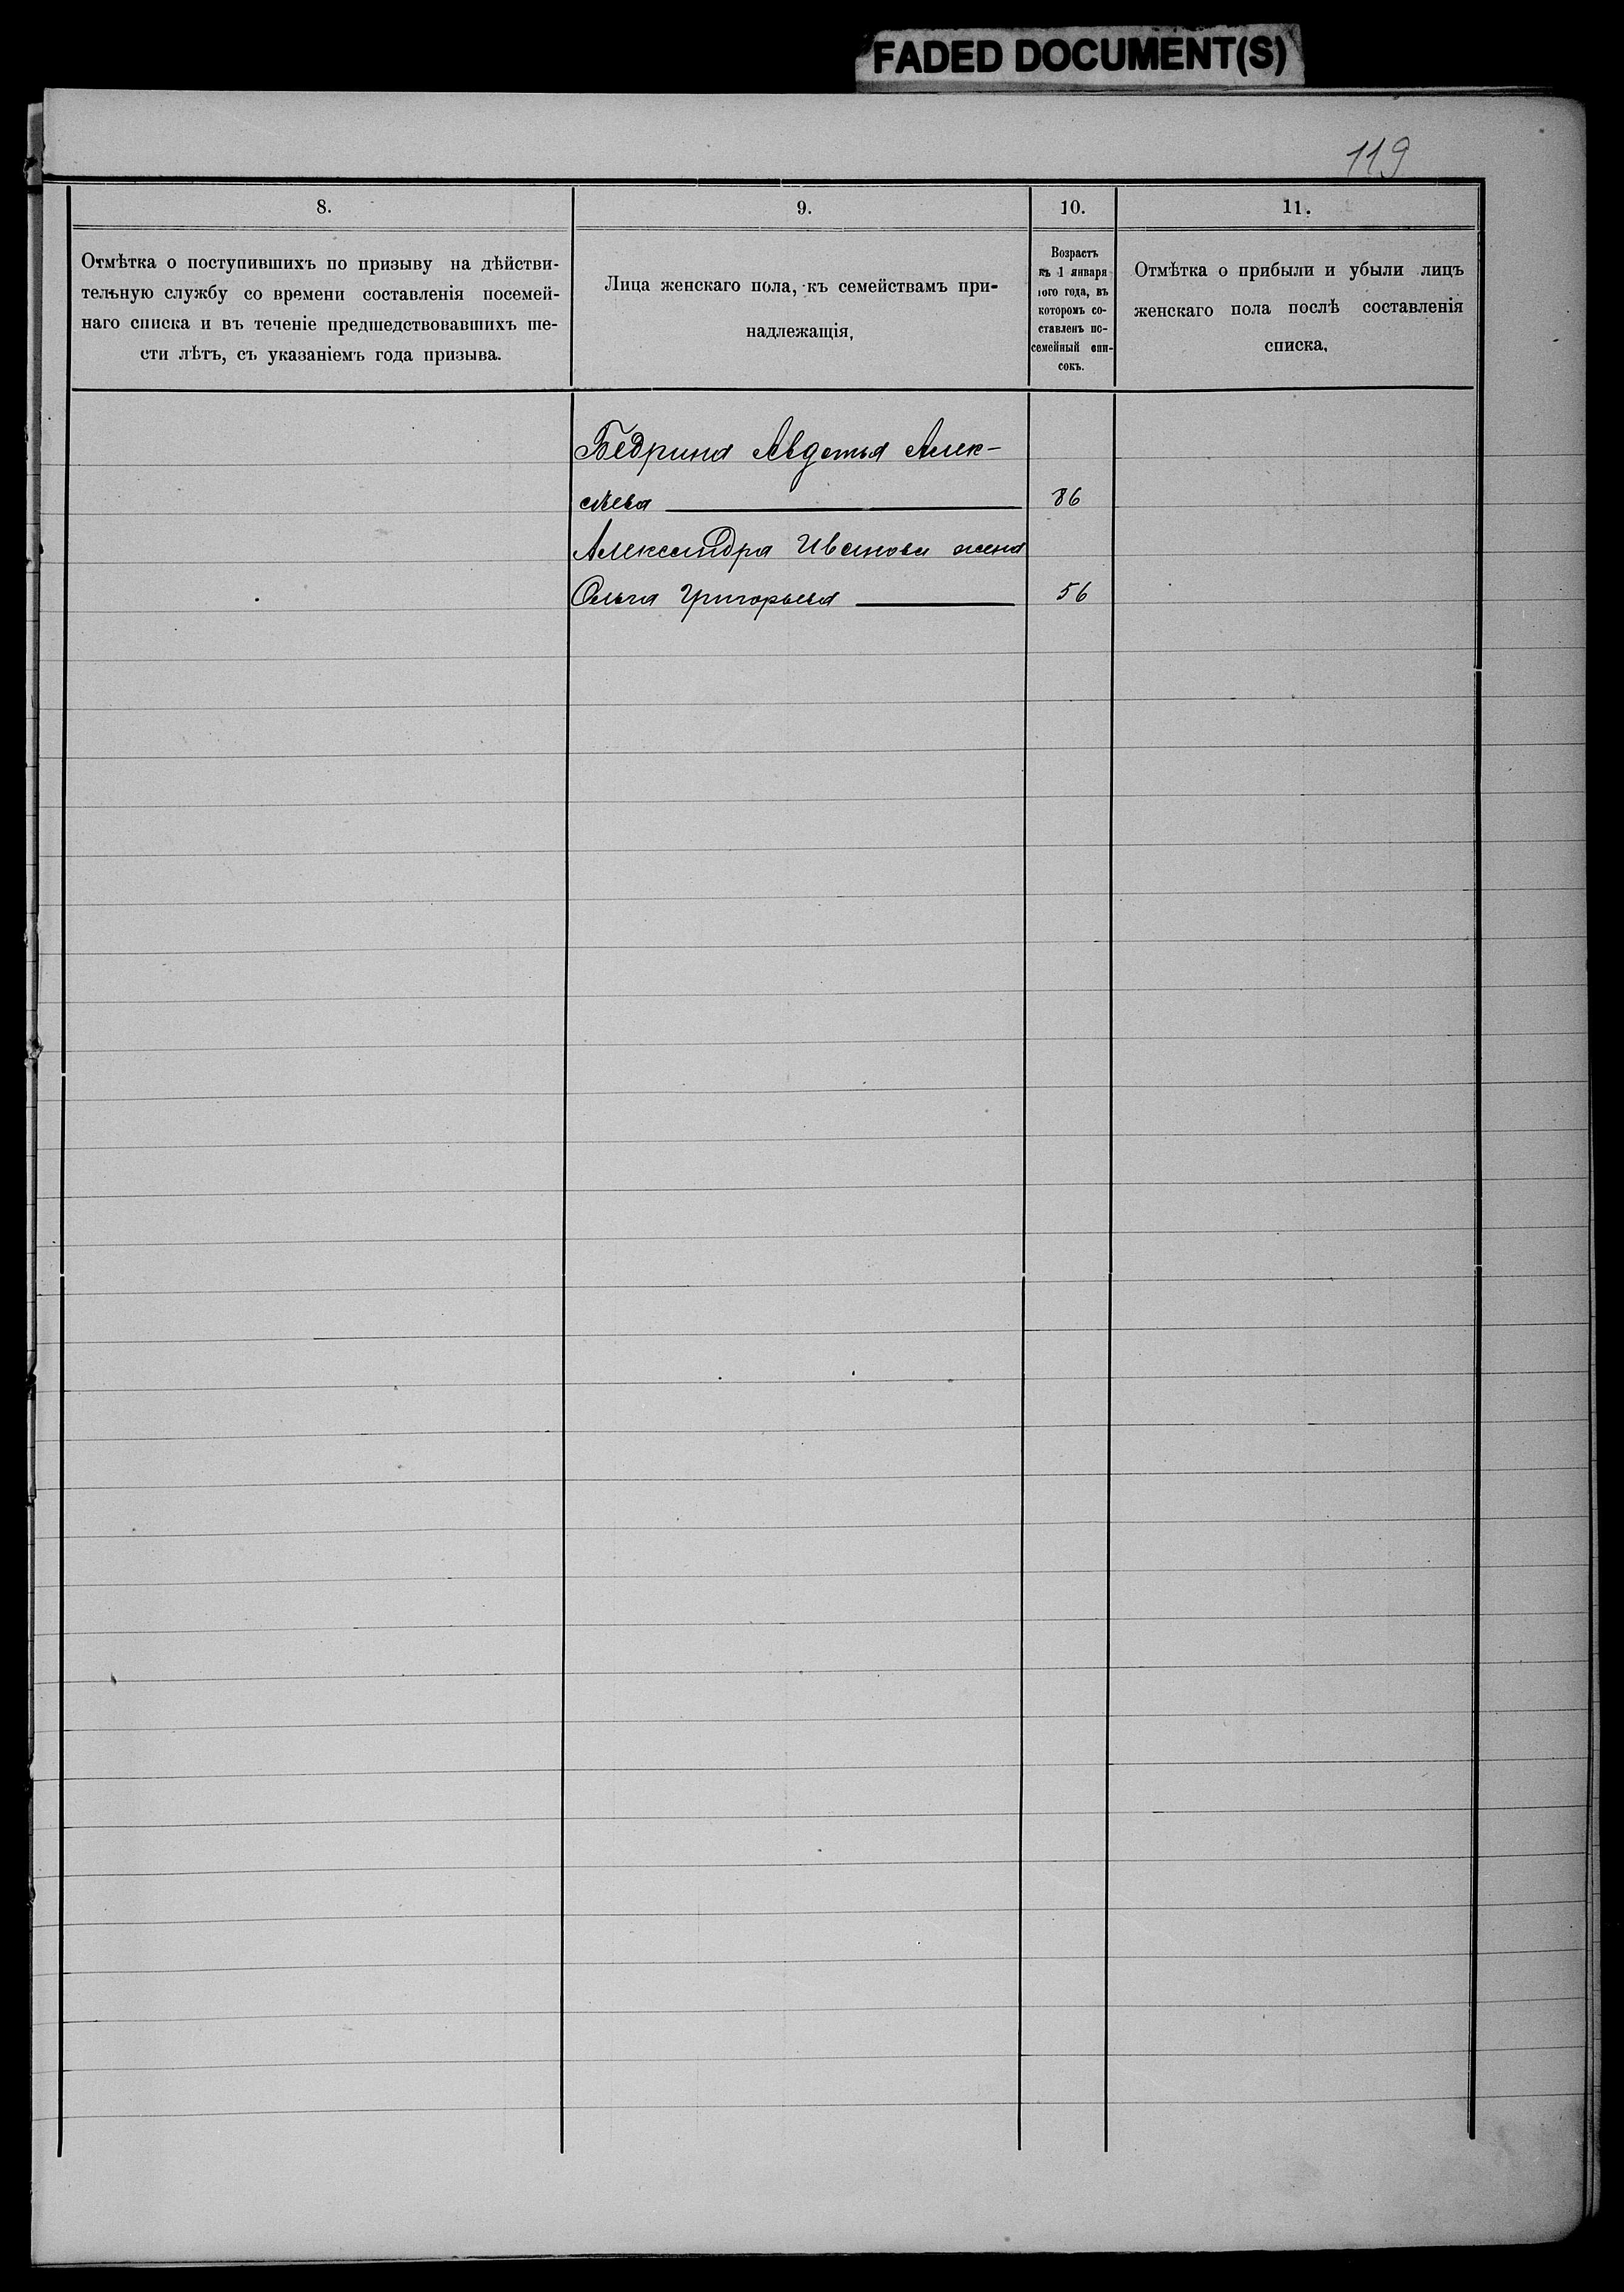 FADED DOCUMENT(S)
119
8.
9.
10.
11.
Отмѣтка о поступившихъ по призыву на дѣйстви-
тельную службу со времени составленія посемей-
наго списка и въ теченіе предшедствовавшихъ ше-
сти лѣтъ, съ указаніемъ года призыва.
Лица женскаго пола, къ семействамъ при-
надлежащія,
Возрастъ
къ 1 января
того года, въ
которомъ со-
ставленъ по-
семейный спи-
сокъ.
Отмѣтка о прибыли и убыли лицъ
женскаго пола послѣ составленія
списка,
Бедрина Авдотья Алек-
сѣева 86
Александра Иванова жена
Ольга Григорьева 56